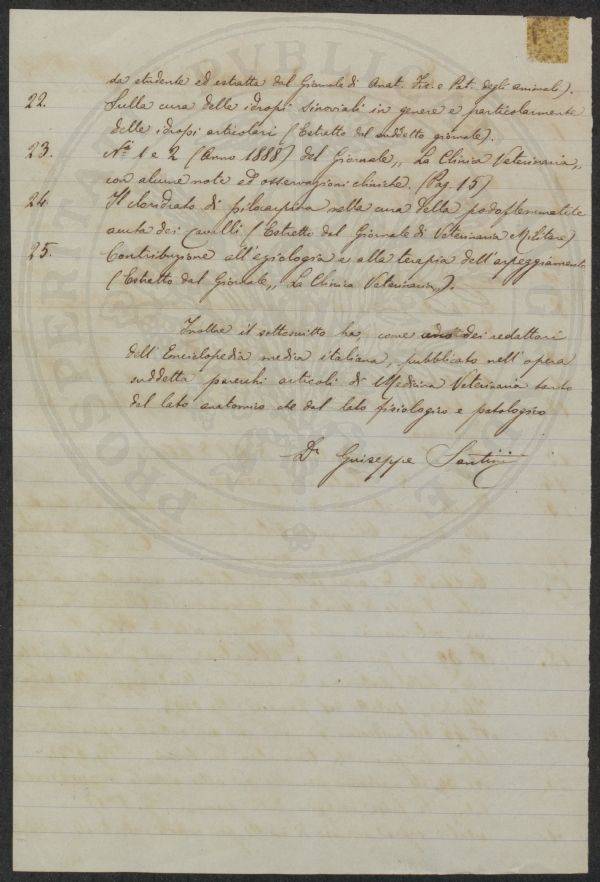 da studente ed estratta dal Giornale di Anat. Fis. e Pat. degli animali).
22. Sulla cura delle idropi sinoviali in genere e particolarmente
delle idropi articolari (Estratto dal suddetto giornale).
23. Nº 1 e 2 (Anno 1888) del Giornale „ La Clinica Veterinaria„
con alcune note ed osservazioni cliniche. (Pag. 15)
24. Il cloridrato di pilocarpina nella cura della podoflemmatite
acuta dei Cavalli (Estratto dal Giornale di Veterinaria Militare)
25. Contribuzione all'egiologia e alla terapia dell'arpeggiamento
(Estratto dal Giornale „ La Clinica Veterinaria„).
Inoltre il sottoscritto ha, come uno dei redattori
dell'Enciclopedia medica italiana, pubblicato nell'opera
suddetta parecchi articoli di Medicina Veterinaria tanto
dal lato anatomico che dal lato fisiologico e patologico
Dr Guiseppe Santini